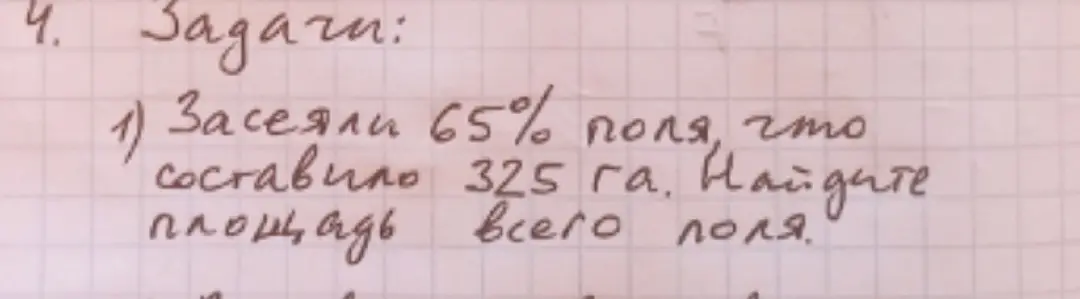 4. Задачи:
1) Засеяли 65% поля, что
составило 325 га. Найдите
площадь всего поля.